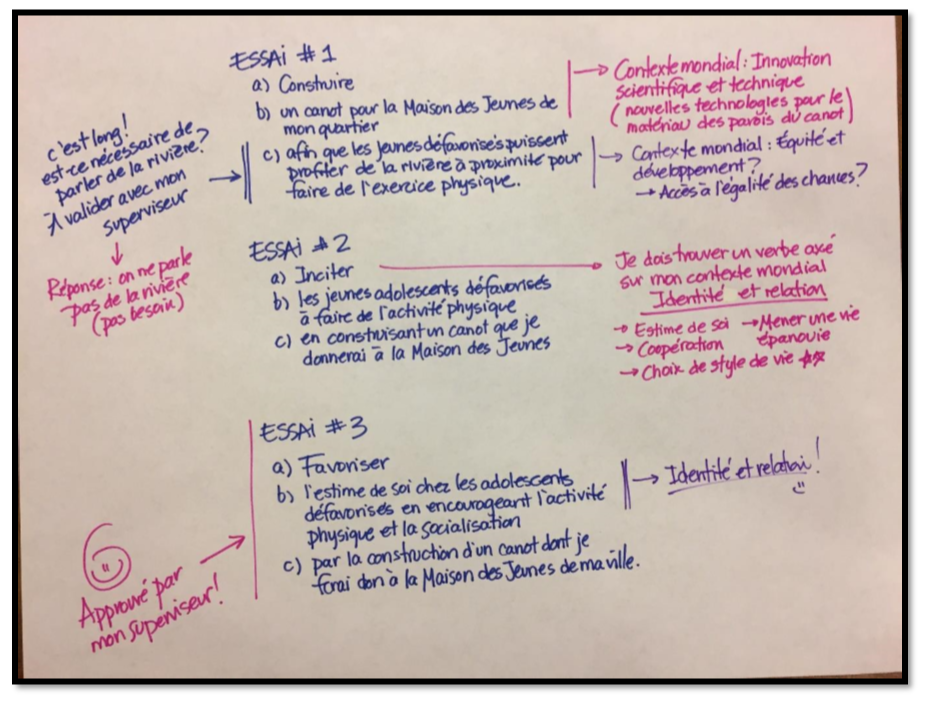 ESSAi #1
a) Construire
b) un canot pour la Maison des Jeunes de
mon quartier
c) afin que les jeunes défavorisés puissent
profiter de la rivière à proximité pour
faire de l'exercice physique.
→ Contexte mondial : Innovation
scientifique et technique
(nouvelles technologies pour le
matériau des parois du canot)
→ Contexte mondial : Équité et
développement?
→ Accès à l'égalité des chances?
c'est long!
est-ce nécessaire de
parler de la rivière?
À valider avec mon
superviseur
Réponse : on ne parle
pas de la rivière
(pas besoin)
ESSAi #2
a) Inciter
b) les jeunes adolescents défavorisés
à faire de l'activité physique
c) en construisant un canot que je
donnerai à la Maison des Jeunes
Je dois trouver un verbe axé
sur mon contexte mondial
Identité et relation
→ Estime de soi → Mener une vie
→ Coopération épanouie
→ Choix de style de vie
ESSAi #3
a) Favoriser
b) l'estime de soi chez les adolescents
défavorisés en encourageant l'activité
physique et la socialisation
c) par la construction d'un canot dont je
ferai don à la Maison des Jeunes de ma ville.
→ Identité et relation!
Approuvé par
mon superviseur!